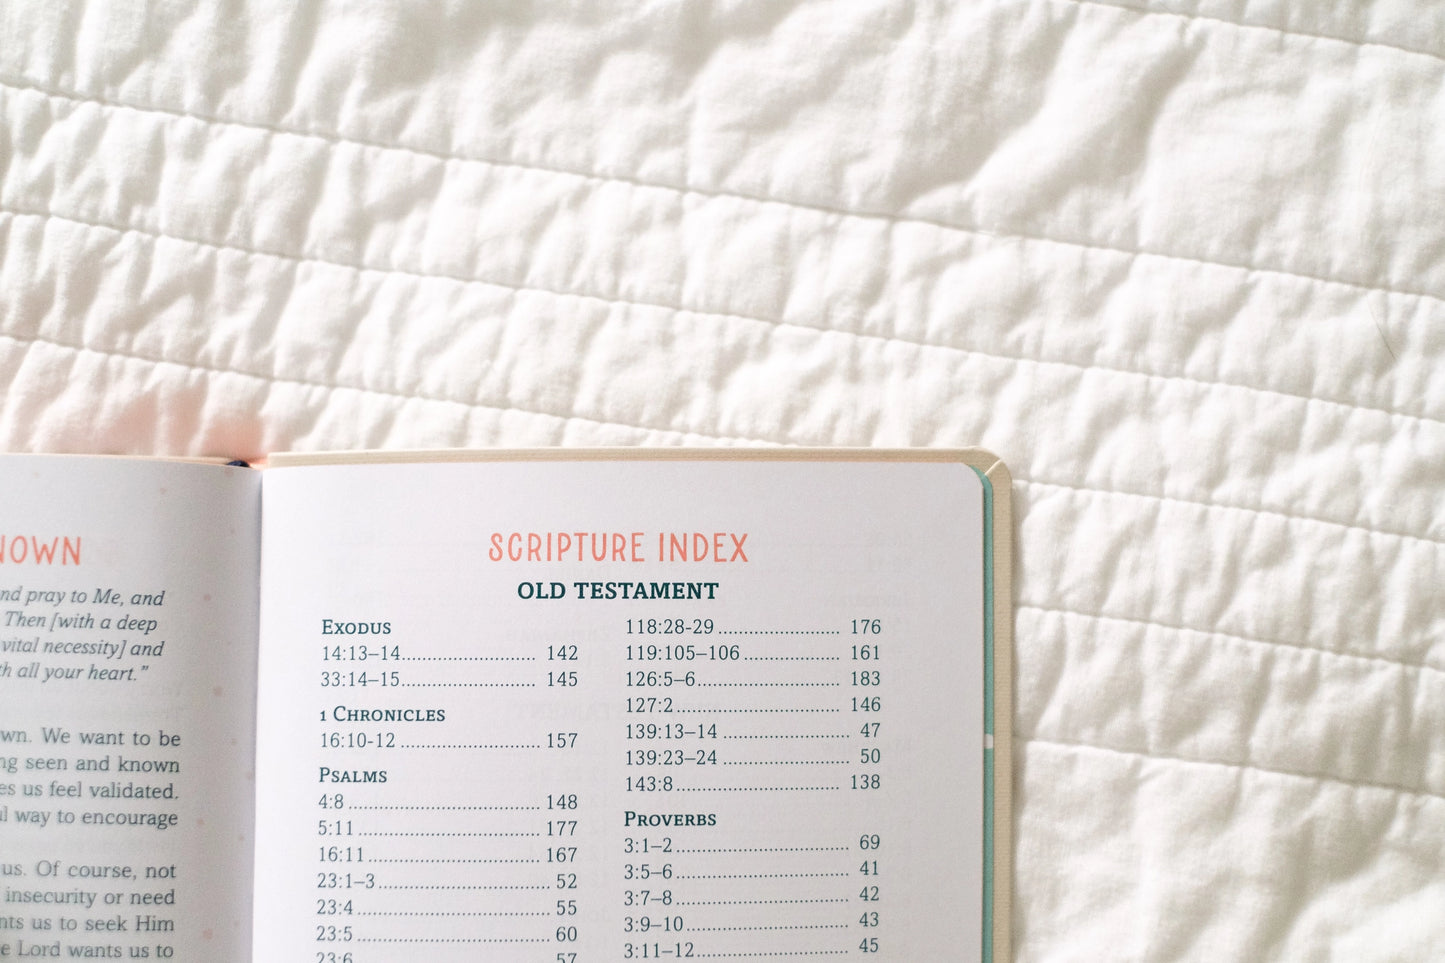 NOWN
nd pray to Me, and
Then [with a deep
vital necessity] and
th all your heart."
wn. We want to be
ng seen and known
es us feel validated.
l way to encourage
us. Of course, not
insecurity or need
nts us to seek Him
e Lord wants us to
SCRIPTURE INDEX
OLD TESTAMENT
EXODUS
14:13–14.............................. 142
33:14–15.............................. 145
1 CHRONICLES
16:10-12 .............................. 157
PSALMS
4:8 ........................................ 148
5:11 ...................................... 177
16:11 .................................... 167
23:1–3 .................................... 52
23:4 ........................................ 55
23:5 ........................................ 60
23:6 ........................................ 57
118:28-29 ........................... 176
119:105–106 ..................... 161
126:5–6................................ 183
127:2 .................................... 146
139:13–14 ............................ 47
139:23–24 ............................ 50
143:8 .................................... 138
PROVERBS
3:1–2 ...................................... 69
3:5–6 ...................................... 41
3:7–8 ...................................... 42
3:9–10 .................................... 43
3:11–12 .................................. 45